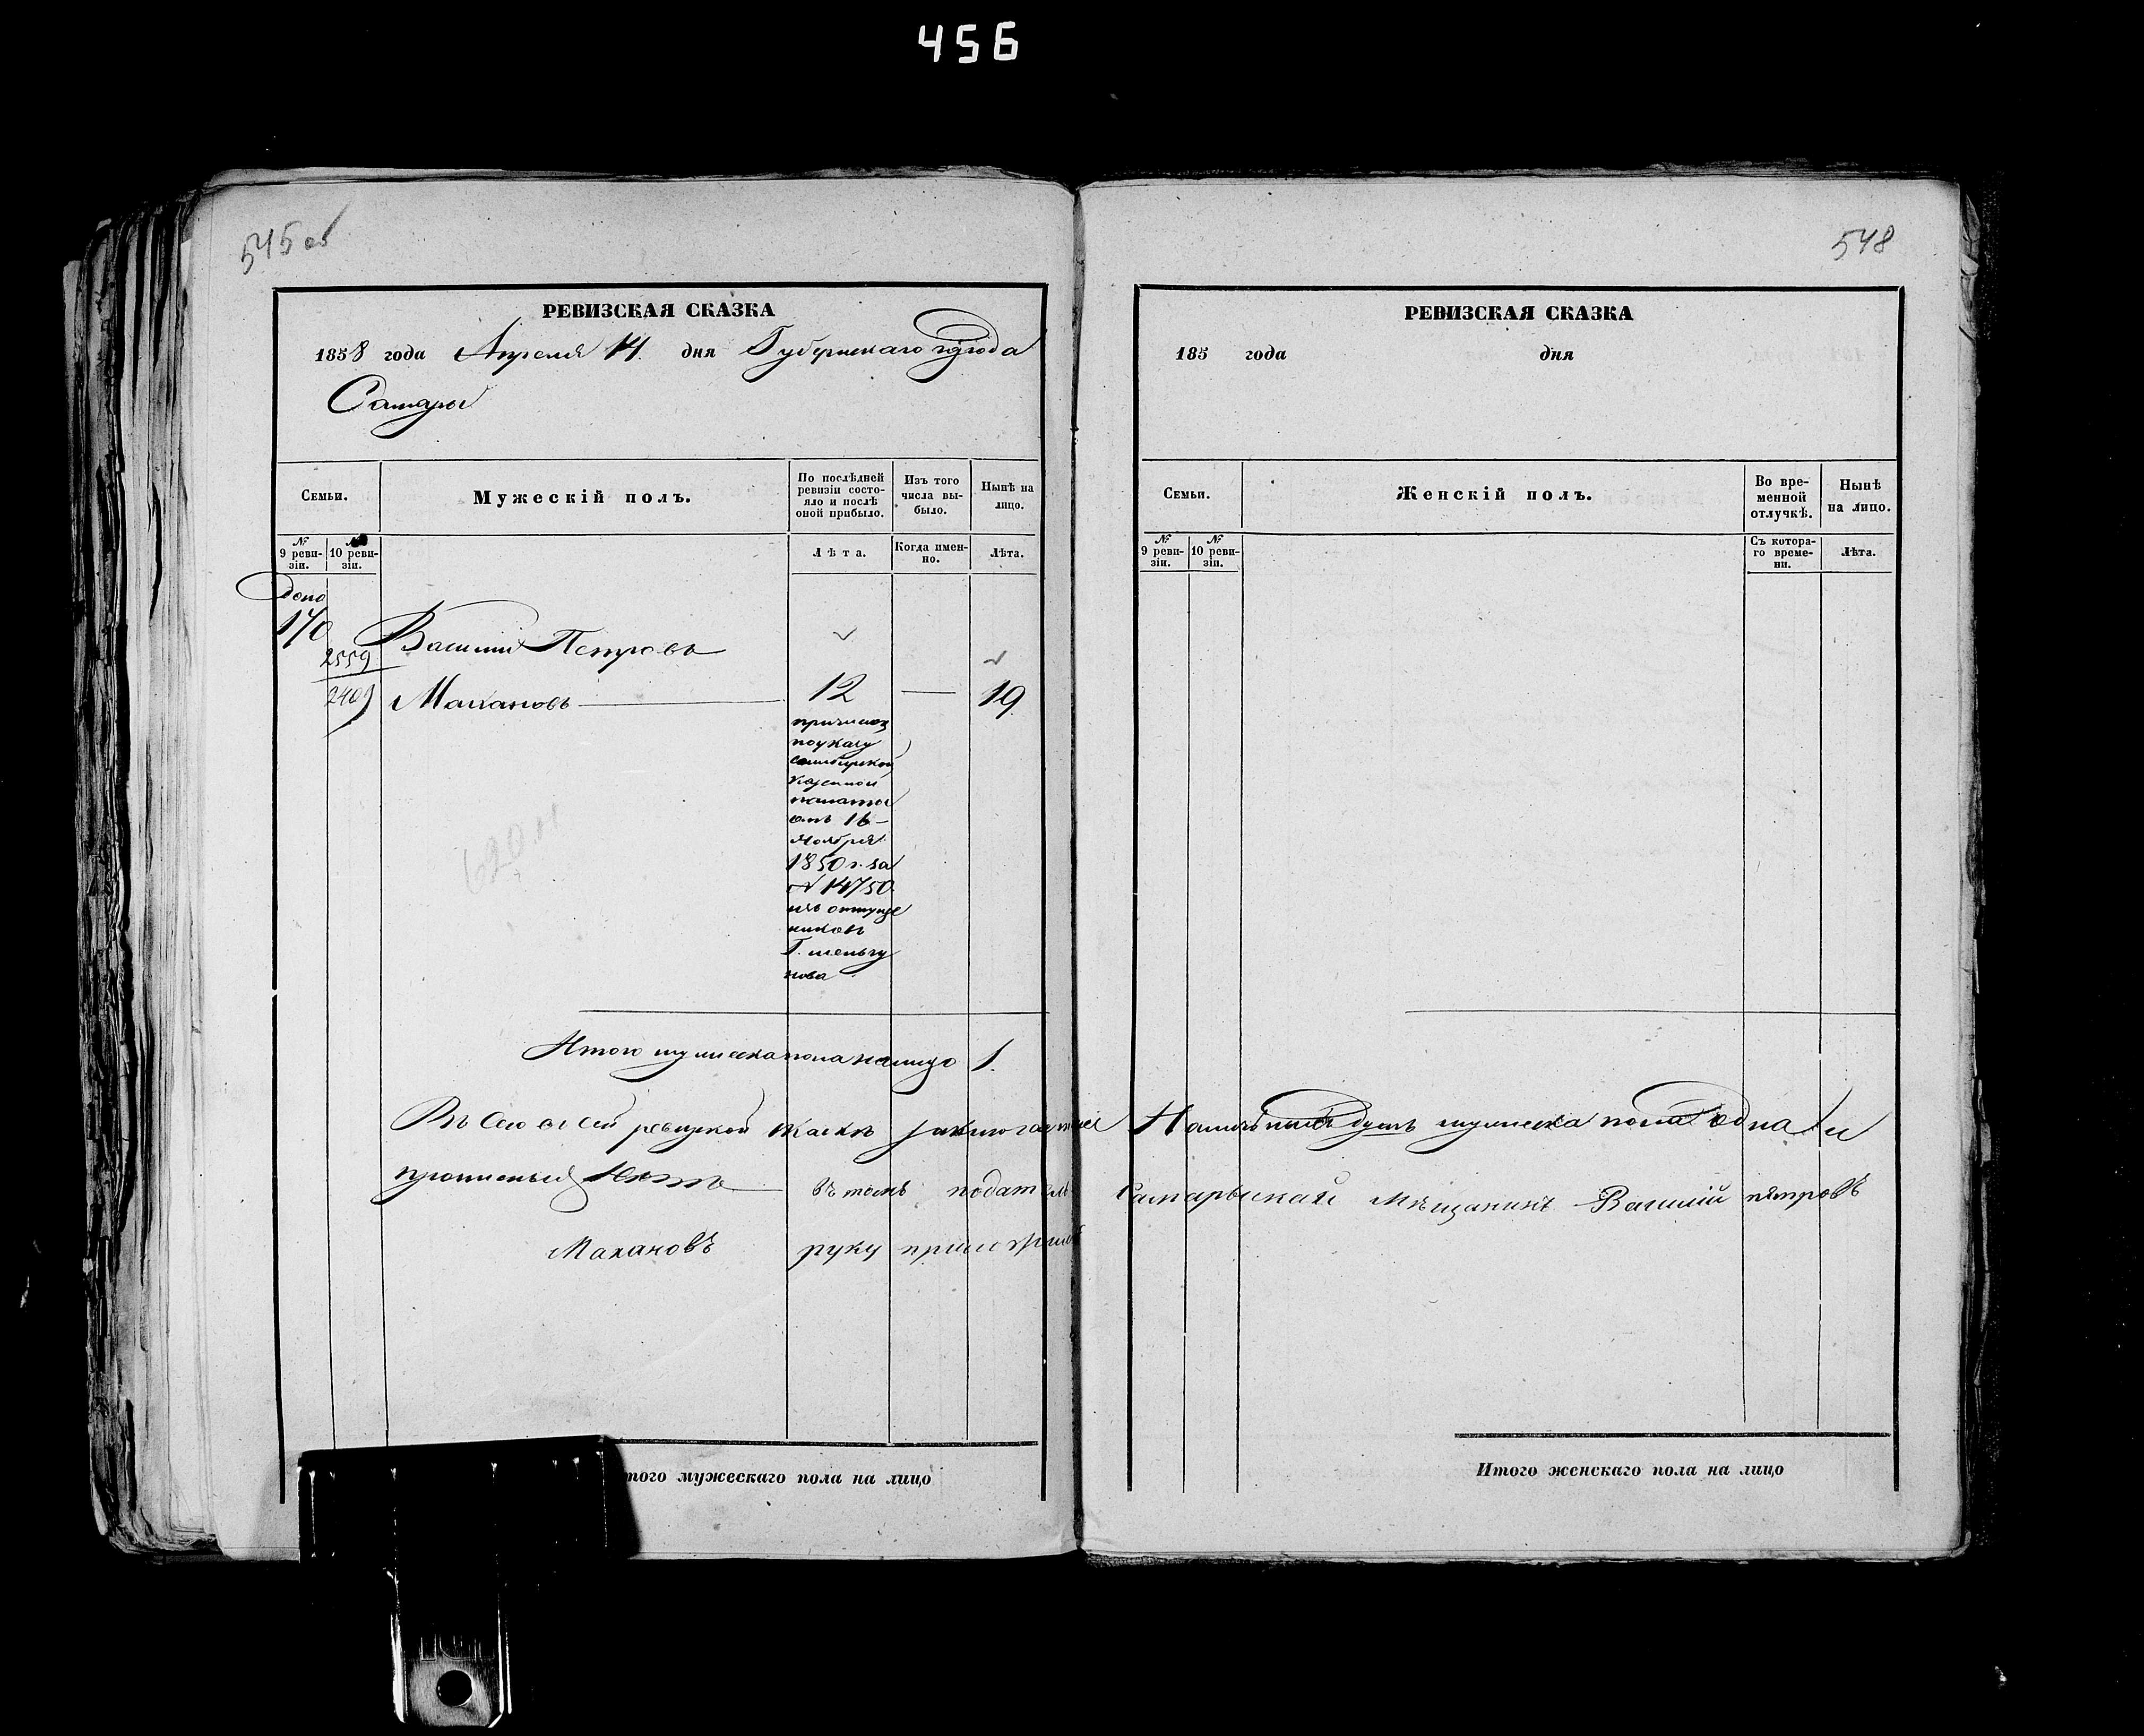 456
545 об
РЕВИЗСКАЯ СКАЗКА
1858 года Апреля 14 дня Губернскаго города
Самары
Семьи.
Мужескій полъ.
По послѣдней ревизіи состояло и послѣ оной прибыло.
Изъ того числа выбыло.
Нынѣ на лицо.
№ 9 ревизіи.
№ 10 ревизіи.
Лѣта.
Когда именно.
Лѣта.
допо
170
Василій Петровъ
2559
2409
Махановъ
12 — 19
причислен
по указу
симбирской
казенной
палаты
отъ 16
Ноября
1850 г. за
№ 14750
изъ отпуще
никовъ
Г.
нова
620
Итого мужеска пола налицо 1.
Въ сей ревизкой скаске заключается
прописныхъ нетъ въ томъ податель
Махановъ руку приложилъ
Итого мужескаго пола на лицо
548
РЕВИЗСКАЯ СКАЗКА
185 года дня
Семьи.
Женскій полъ.
Во временной отлучкѣ.
Нынѣ на лицо.
№ 9 ревизіи.
№ 10 ревизіи.
Съ котораго времени.
Лѣта.
душъ мужеска пола одна и
самарьскай мѣщанинъ Василій пятровъ
Итого женскаго пола на лицо